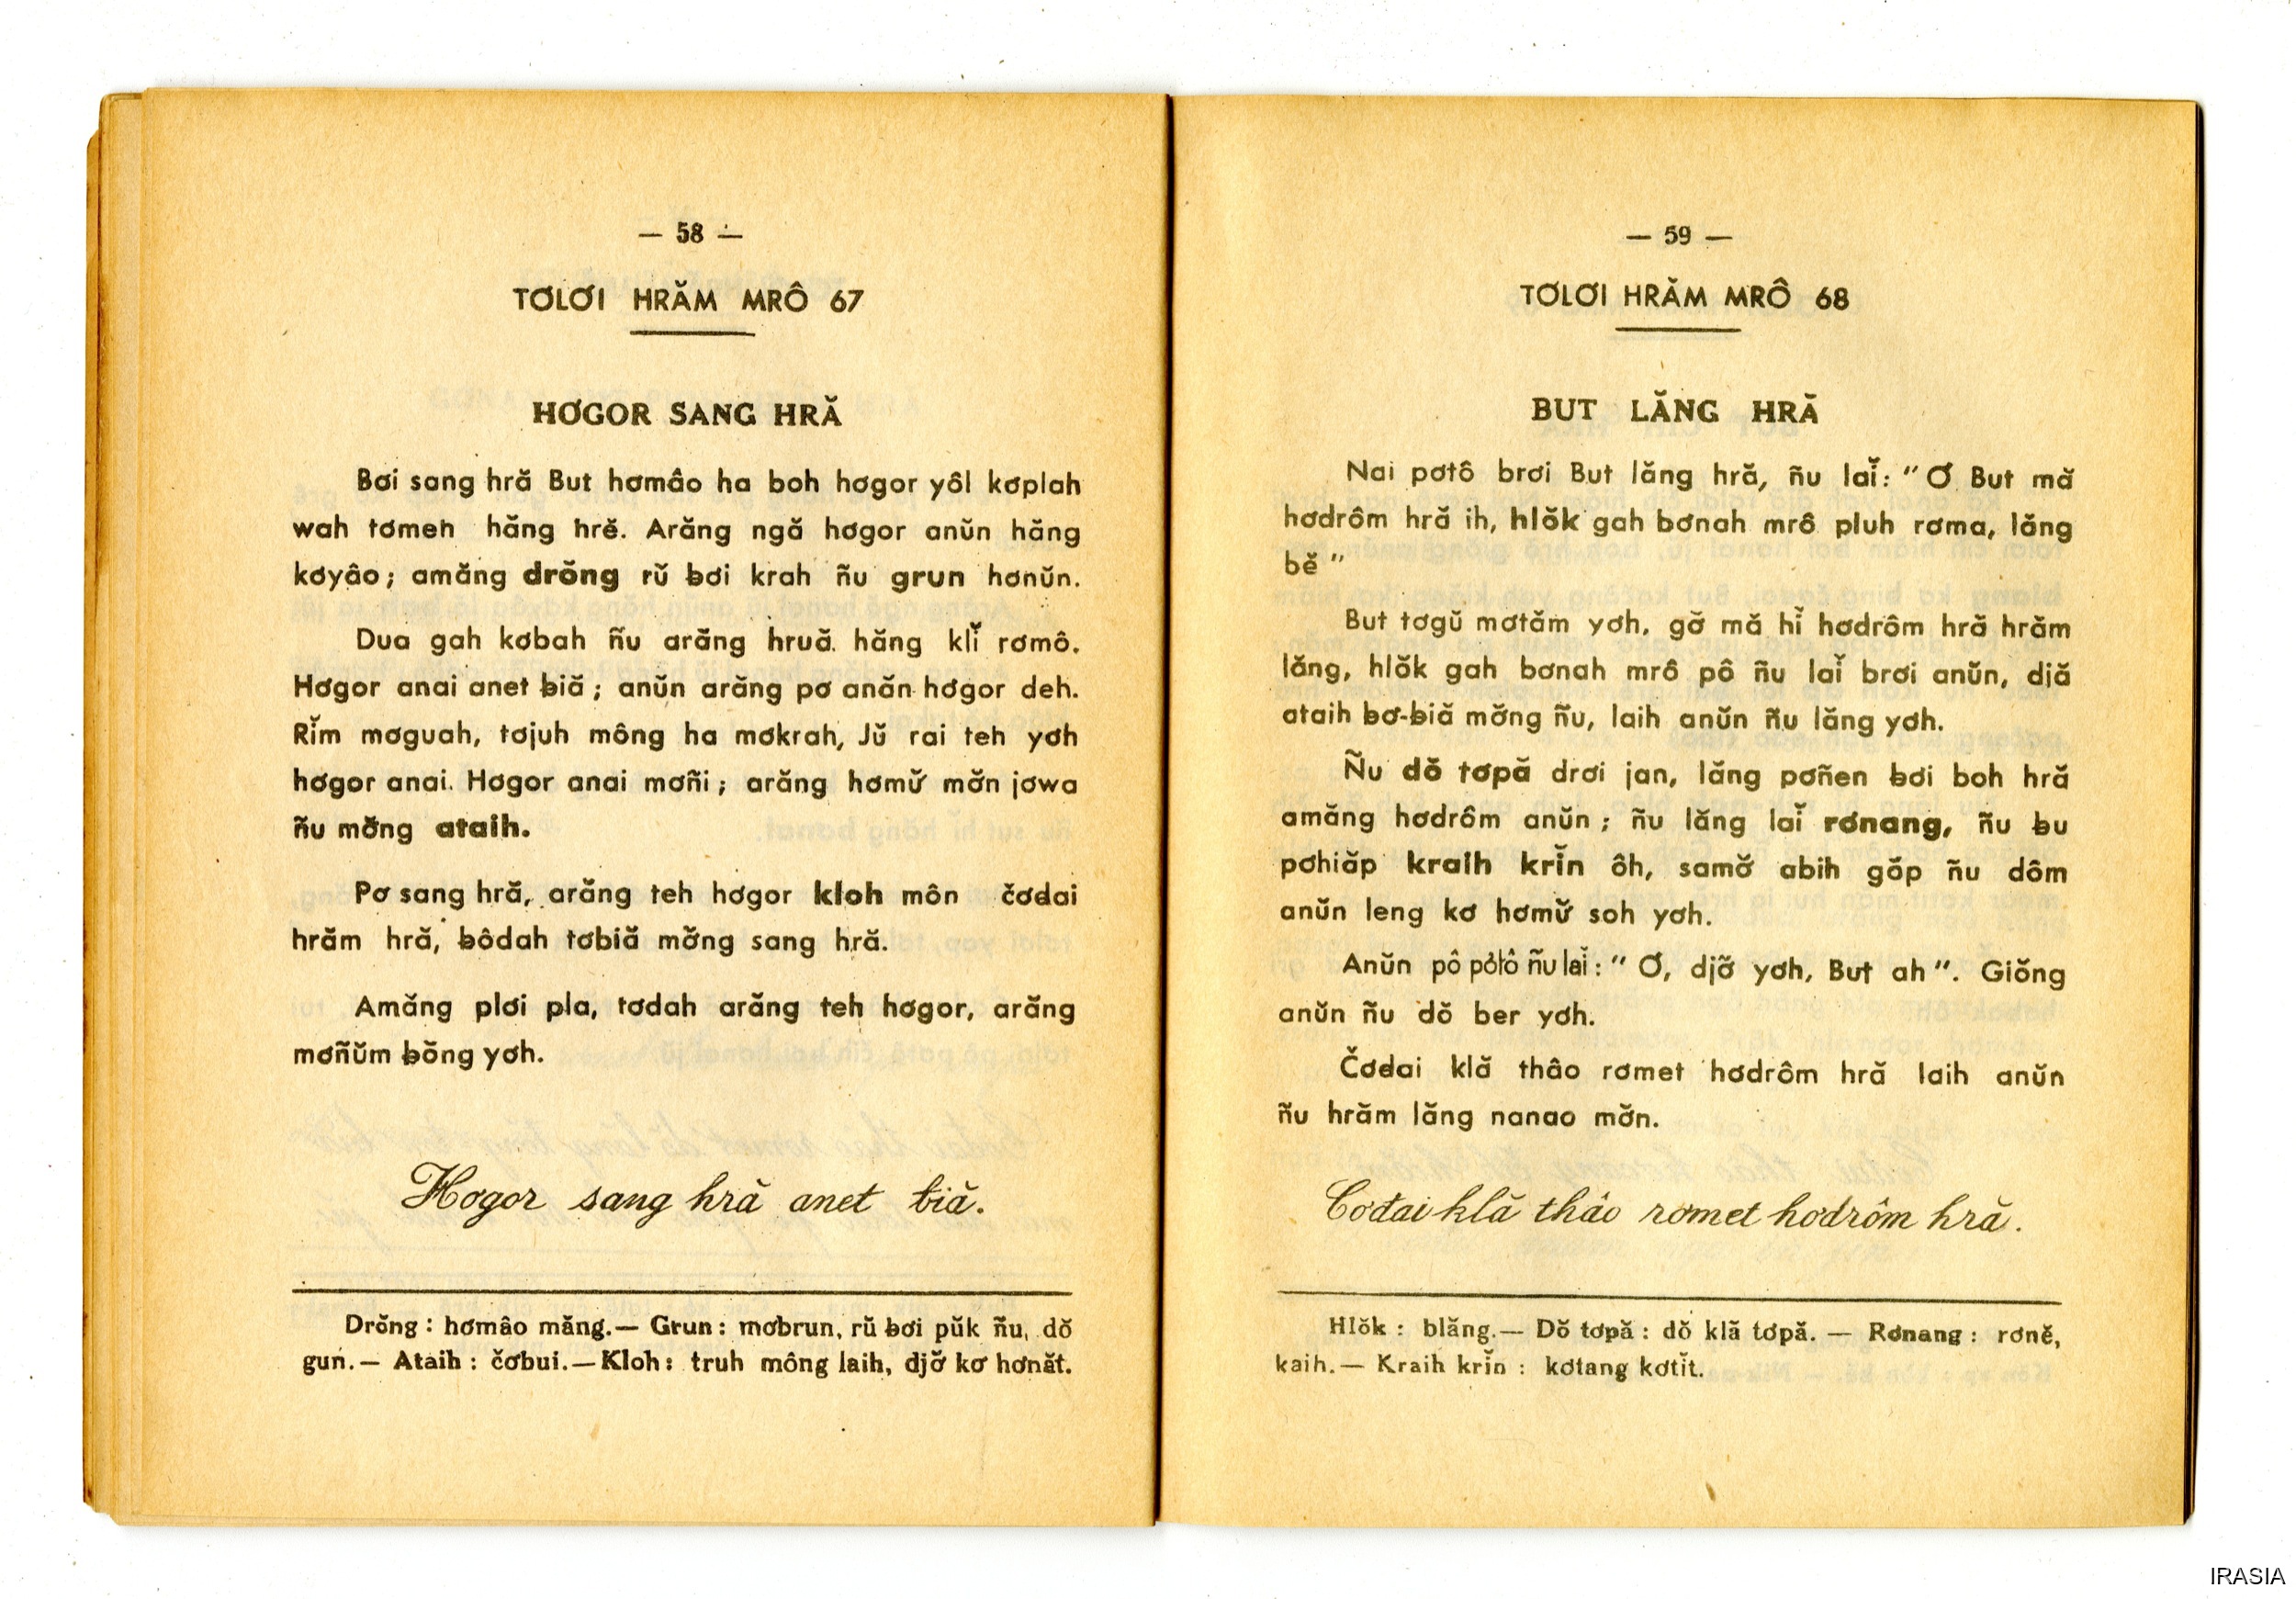 — 58 —
TƠLƠI HRĂM MRÔ 67
HƠGOR SANG HRĂ
Bơi sang hră But hơmâo ha boh hơgor yôl kơplah
wah tơmeh hăng hrĕ. Arăng ngă hơgor anŭn hăng
kơyâo; amăng drŏng rŭ ƀơi krah ñu grun hơnŭn.
Dua gah kơbah ñu arăng hruă hăng klĭ rơmô.
Hơgor anai anet ƀiă; anŭn arăng pơ anăn hơgor deh.
Rĭm mơguah, tơjuh mông ha mơkrah, Jŭ rai teh yơh
hơgor anai. Hơgor anai mơñi; arăng hơmư̆ mơ̆n jơwa
ñu mơ̆ng ataih.
Pơ sang hră, arăng teh hơgor kloh môn čơđai
hrăm hră, ƀôdah tơbiă mơ̆ng sang hră.
Amăng plơi pla, tơdah arăng teh hơgor, arăng
mơñŭm ƀŏng yơh.
Hơgor sang hră anet ƀiă.
Drŏng : hơmâo măng.— Grun : mơbrun, rŭ ƀơi pŭk ñu, dŏ
gun.— Ataih : čơbui.—Kloh : truh mông laih, djơ̆ kơ hơnăt.
— 59 —
TƠLƠI HRĂM MRÔ 68
BUT LĂNG HRĂ
Nai pơtô brơi But lăng hră, ñu laĭ: " Ơ But mă
hơdrôm hră ih, hlŏk gah bơnah mrô pluh rơma, lăng
bĕ "
But tơgŭ mơtăm yơh, gơ̆ mă hĭ hơdrôm hră hrăm
lăng, hlŏk gah bơnah mrô pô ñu laĭ brơi anŭn, djă
ataih ƀơ-ƀiă mơ̆ng ñu, laih anŭn ñu lăng yơh.
Ñu dŏ tơpă drơi jan, lăng pơñen ƀơi boh hră
amăng hơdrôm anŭn ; ñu lăng laĭ rơnang, ñu ƀu
pơhiăp kraih krĭn ôh, samơ̆ abih gŏp ñu dôm
anŭn leng kơ hơmư̆ soh yơh.
Anŭn pô pơtô ñu laĭ : " Ơ, djơ̆ yơh, But ah ". Giŏng
anŭn ñu dŏ ber yơh.
Čơđai klă thâo rơmet hơdrôm hră laih anŭn
ñu hrăm lăng nanao mơ̆n.
Čơđai klă thâo rơmet hơdrôm hră.
Hlŏk : blăng.— Dŏ tơpă : dŏ klă tơpă. — Rơnang : rơnĕ,
kaih.— Kraih krĭn : kơtang kơtĭt.
IRASIA